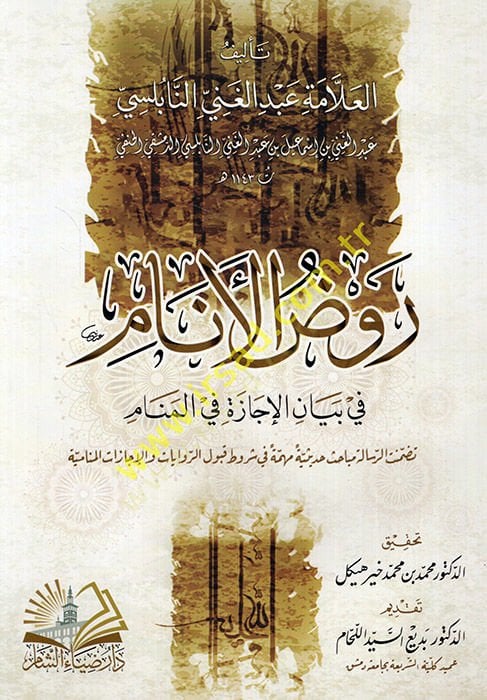 تَأليفُ
العَلَّامَةِ عَبْدِ الغَنِيِّ النَّابُلسِيِّ
عبد الغني بن إسماعيل بن عبد الغني النابلسي الدمشقي الحنفي
ت ١١٤٣ هـ
رَوضُ الأَنَامِ
في بَيَانِ الإِجَازَةِ في المَنَامِ
تضمنت الرسالة مباحث حديثية مهمة في شروط قبول الروايات والإجازات المنامية
تحقيق
الدكتور محمد بن محمد خير هيكل
تقديم
الدكتور بديع السيد اللحام
عميد كلية الشريعة بجامعة دمشق
الله
دار ضياء الشام